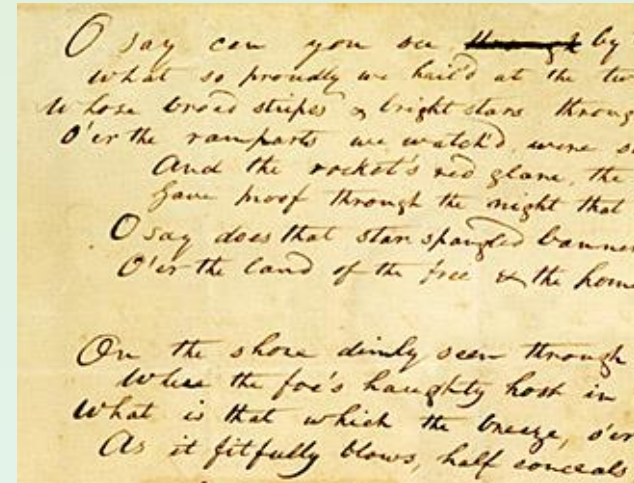 O say can you see through by
What so proudly we hail'd at the tw
Whose broad stripes & bright stars throug
O'er the ramparts we watch'd, were s
And the rocket's red glare, the
Gave proof through the night that
O say does that star spangled banner
O'er the land of the free & the home
On the shore dimly seen through
Where the foe's haughty host in
What is that which the breeze, o'er
As it fitfully blows, half conceals